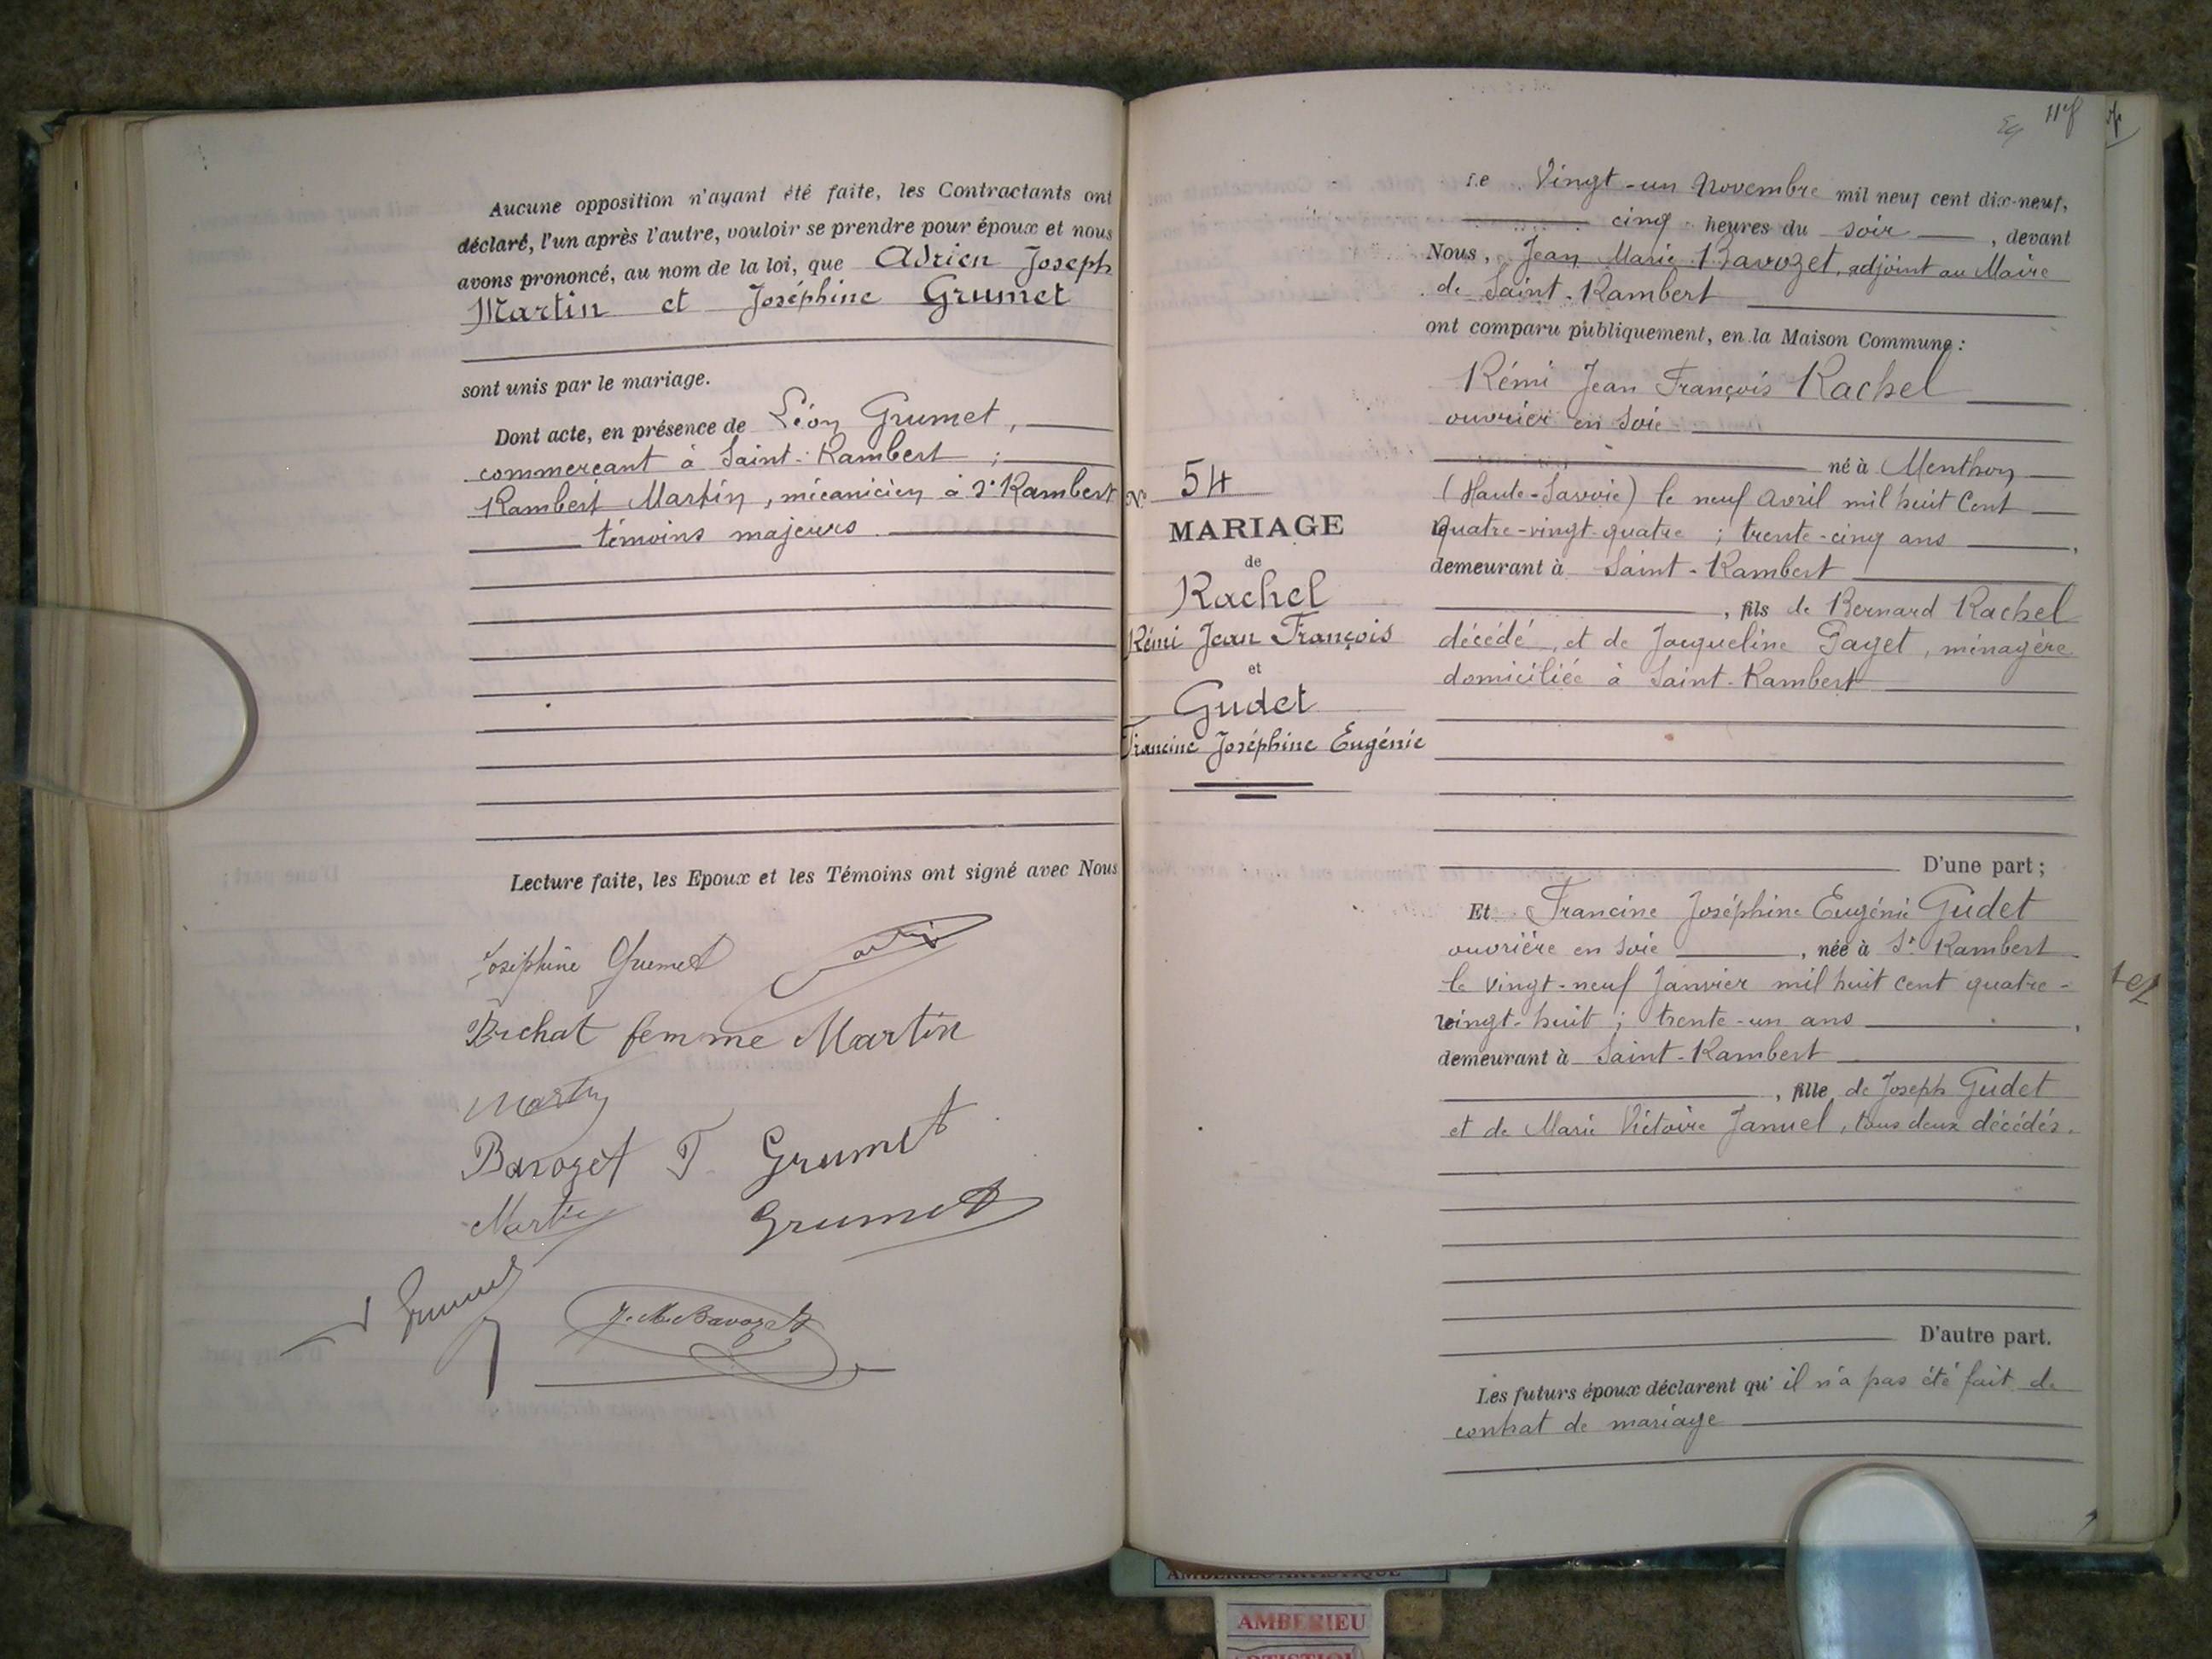 Aucune opposition n'ayant été faite, les Contractants ont
déclaré, l'un après l'autre, vouloir se prendre pour époux et nous
avons prononcé, au nom de la loi, que Adrien Joseph
Martin et Joséphine Grumet
sont unis par le mariage.
Dont acte, en présence de Léon Grumet,
commerçant à Saint-Rambert ;
Rambert Martin, mécanicien à St Rambert
témoins majeurs
Lecture faite, les Epoux et les Témoins ont signé avec Nous
Joséphine Grumet
Brichat femme Martin
Martin
Bavozet T. Grumet
Martin Grumet
Grumet
J. M. Bavozet
Le Vingt-un Novembre mil neuf cent dix-neuf,
cinq heures du soir, devant
Nous, Jean Marie Bavozet, adjoint au Maire
de Saint-Rambert
ont comparu publiquement, en la Maison Commune :
Rémi Jean François Rachel
ouvrier en soie
né à Menthon
(Haute-Savoie) le neuf avril mil huit cent
quatre-vingt-quatre ; trente-cinq ans,
demeurant à Saint-Rambert
, fils de Bernard Rachel
décédé, et de Jacqueline Paget, ménagère
domiciliée à Saint-Rambert
D'une part ;
N° 54
MARIAGE
de
Rachel
Rémi Jean François
et
Gudet
Francine Joséphine Eugénie
Et Francine Joséphine Eugénie Gudet
ouvrière en soie, née à St Rambert
le vingt-neuf Janvier mil huit cent quatre-
vingt-huit ; trente-un ans,
demeurant à Saint-Rambert
, fille de Joseph Gudet
et de Marie Victoire Januel, tous deux décédés.
D'autre part.
Les futurs époux déclarent qu'il n'a pas été fait de
contrat de mariage
AMBERIEU ARTISTIQUE
AMBERIEU